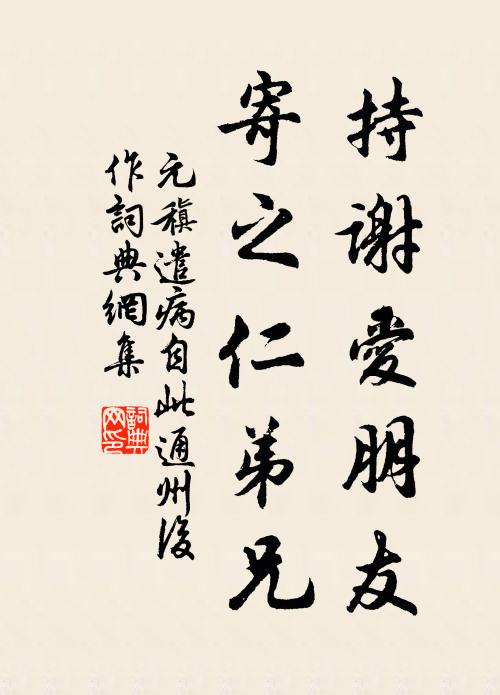 持謝愛朋友
寄之仁弟兄
元稹遣病自此通州後
作詞典網集
詞典網印